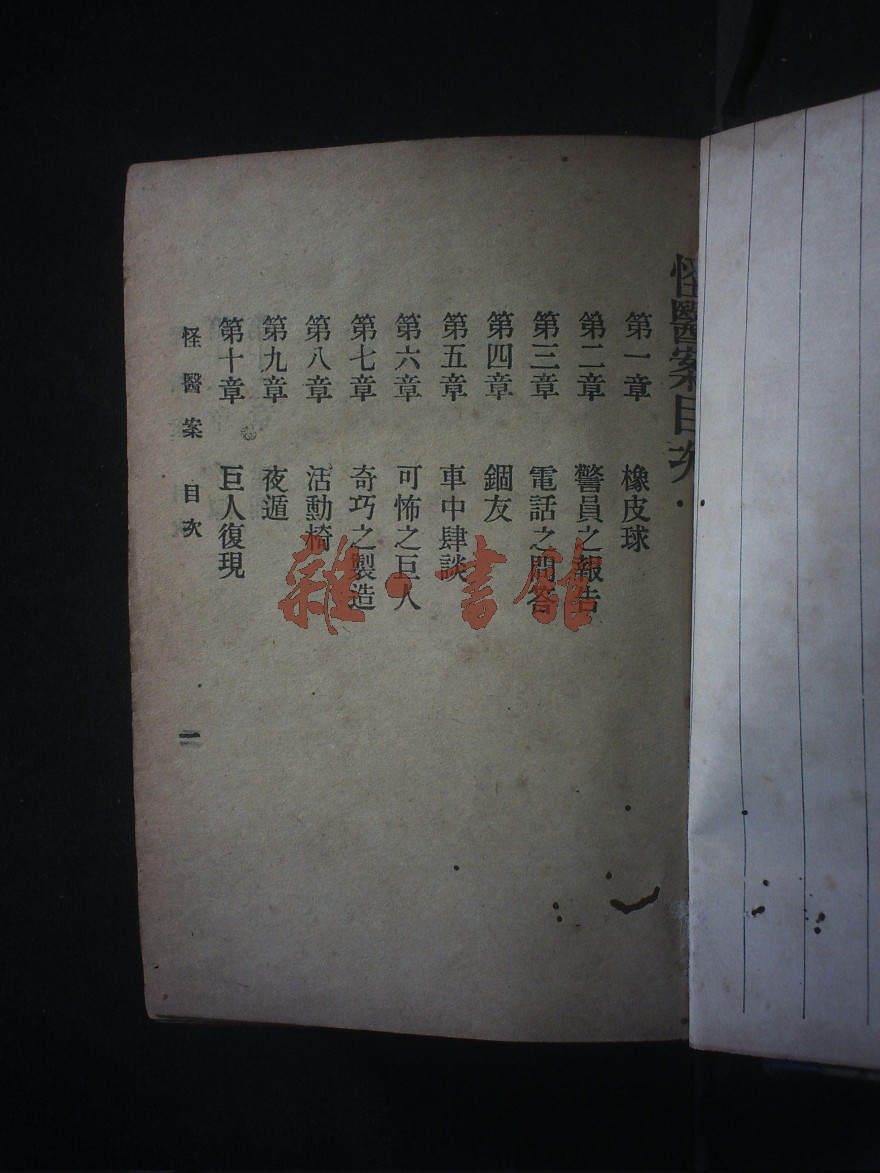 怪醫案目次
第一章　橡皮球
第二章　警員之報告
第三章　電話之問答
第四章　錮友
第五章　車中肆談
第六章　可怖之巨人
第七章　奇巧之製造
第八章　活動椅
第九章　夜遁
第十章　巨人復現
怪醫案　目次　一
雜·書館